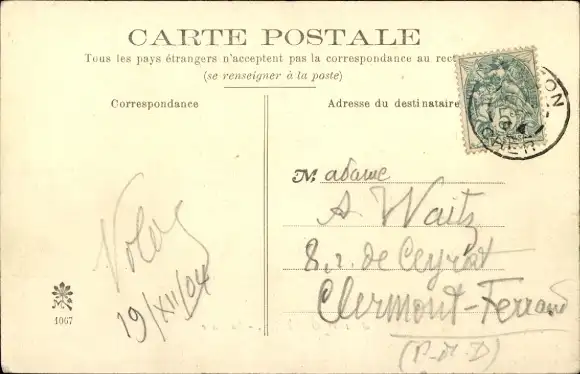 CARTE POSTALE
Tous les pays étrangers n'acceptent pas la correspondance au rec
(se renseigner à la poste)
Correspondance
Adresse du destinataire
Madame
A. Waitz
8, r. de Ceyrat
Clermont-Ferrand
(P-de-D)
19/XII/04
1067
ON
CHER